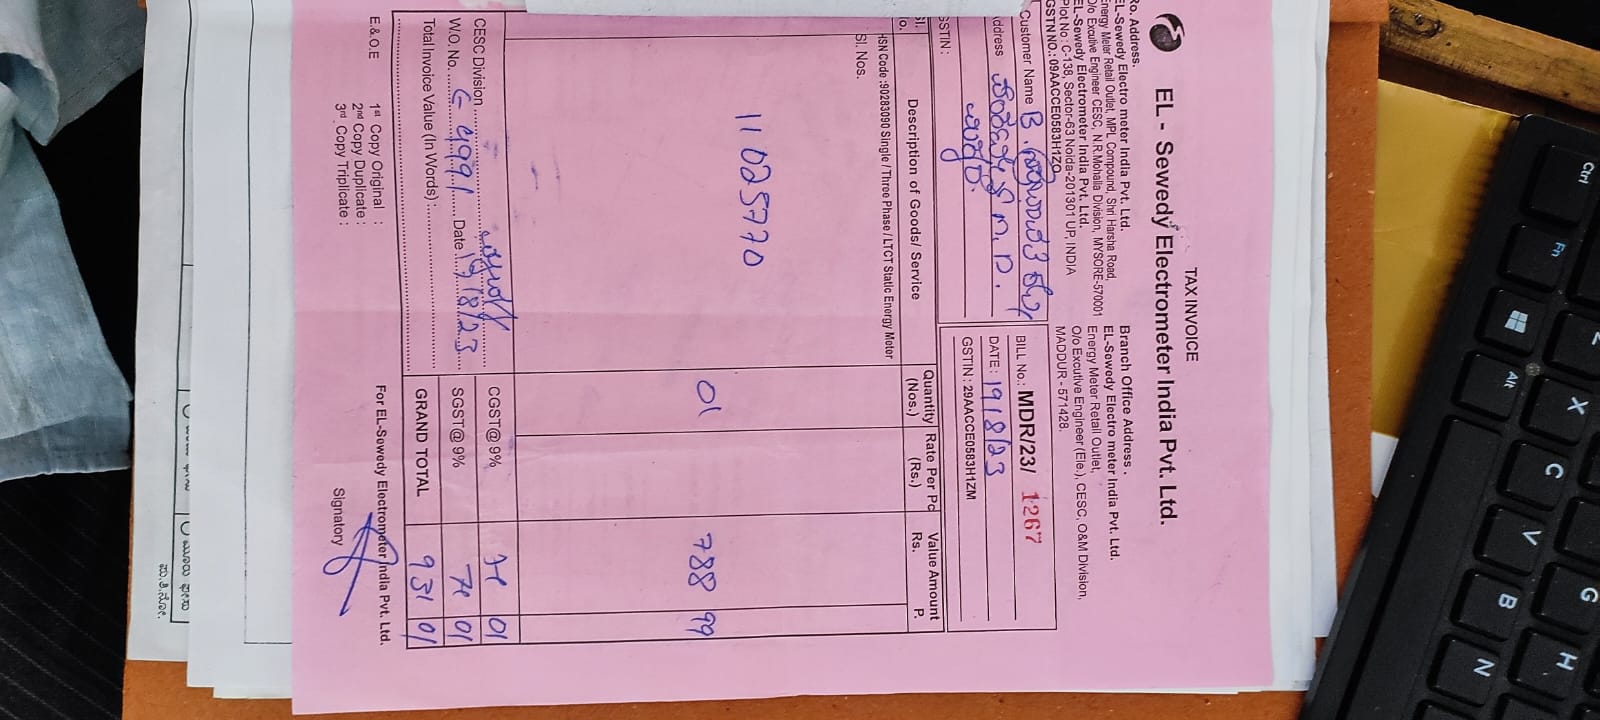 TAX INVOICE
EL - Sewedy Electrometer India Pvt. Ltd.
Ro. Address.
EL-Sewedy Electro meter India Pvt. Ltd.
Energy Meter Retail Outlet, MPL Compound, Shri Harsha Road,
O/o Excutive Engineer CESC, N.R.Mohalla Division, MYSORE-570001
EL-Sewedy Electrometer India Pvt. Ltd.
Plot No. C-138, Sector-63 Noida-201301 UP, INDIA
GSTN NO.: 09AACCE0583H1ZO
Branch Office Address .
EL-Sewedy Electro meter India Pvt. Ltd.
Energy Meter Retail Outlet,
O/o Executive Engineer (Ele.), CESC, O&M Division,
MADDUR - 571428.
Customer Name B.
Address
GSTIN :
BILL No.: MDR/23/ 1267
DATE : 19/8/23
GSTIN : 29AACCE0583H1ZM
Sl. No. Description of Goods/ Service Quantity (Nos.) Rate Per Pc (Rs.) Value Amount Rs. P.
HSN Code :90283090 Single / Three Phase / LTCT Static Energy Meter
Sl. Nos.
11025770 01 788 99
CESC Division CGST@9% 71 01
W.O. No. 4991 Date 19/8/23 SGST@9% 71 01
Total Invoice Value (In Words) : GRAND TOTAL 931 01
E.& O.E
1st Copy Original :
2nd Copy Duplicate :
3rd Copy Triplicate :
For EL-Sewedy Electrometer India Pvt. Ltd.
Signatory
Ctrl
Fn
Alt
Z
X
C
V
B
N
G
H